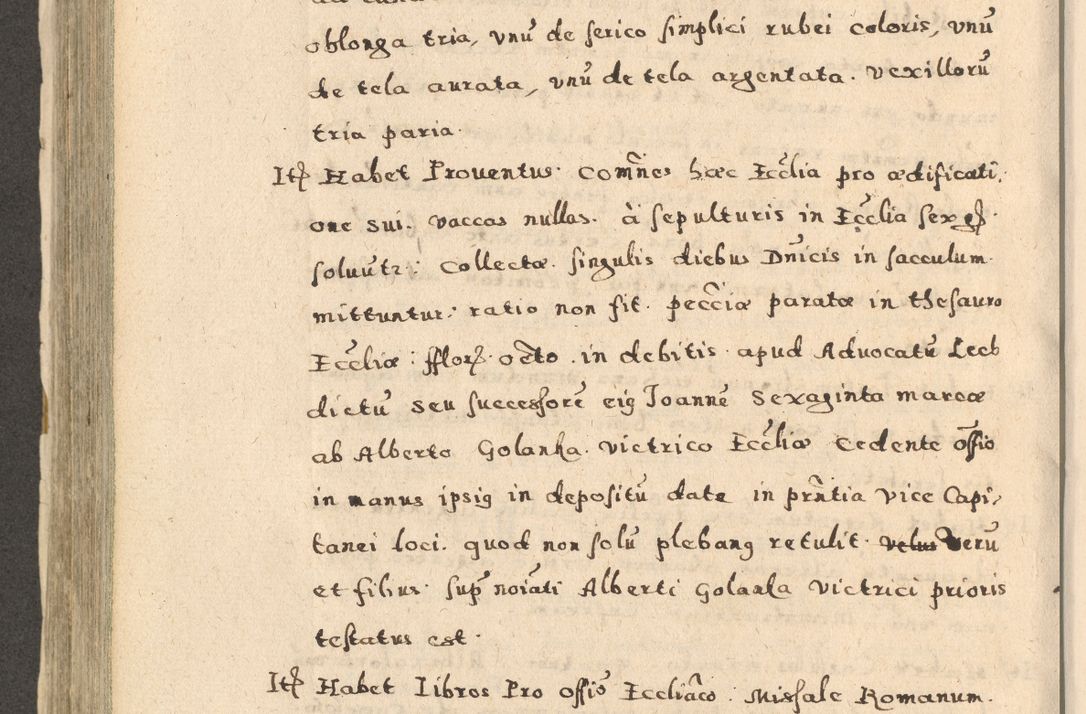 oblonga tria, vnũ de serico simplici rubei coloris, vnũ
de tela aurata, vnũ de tela argentata. vexillorũ
tria paria.
Itẽ Habet Prouentus. Com̃nes hæc Ecc̃lia pro ædificati,
one sui. vaccas nullas. à sepulturis in Ecc̃lia sex gr̃.
soluũtr: Collectæ. singulis diebus Dñicis in sacculum.
mittuntur: ratio non fit. pecc̃iæ paratæ in thesauro
Ecc̃liæ: fflor. octo. in debitis apud Aduocatũ Lech
dictũ seu successorẽ eiꝰ Joannẽ Sexaginta marcæ
ab Alberto Golanka. victrico Ecc̃liæ Cedente offio
in manus ipsiꝰ in depositũ datæ in prñtia Vice Capi,
tanei loci. quod non solũ plebanꝰ retulit verũ
et filius. sup̃ noiãti Alberti Golanka Victrici prioris
testatus est.
Itẽ Habet Libros Pro offiõ Eccliãco: Missale Romanum.